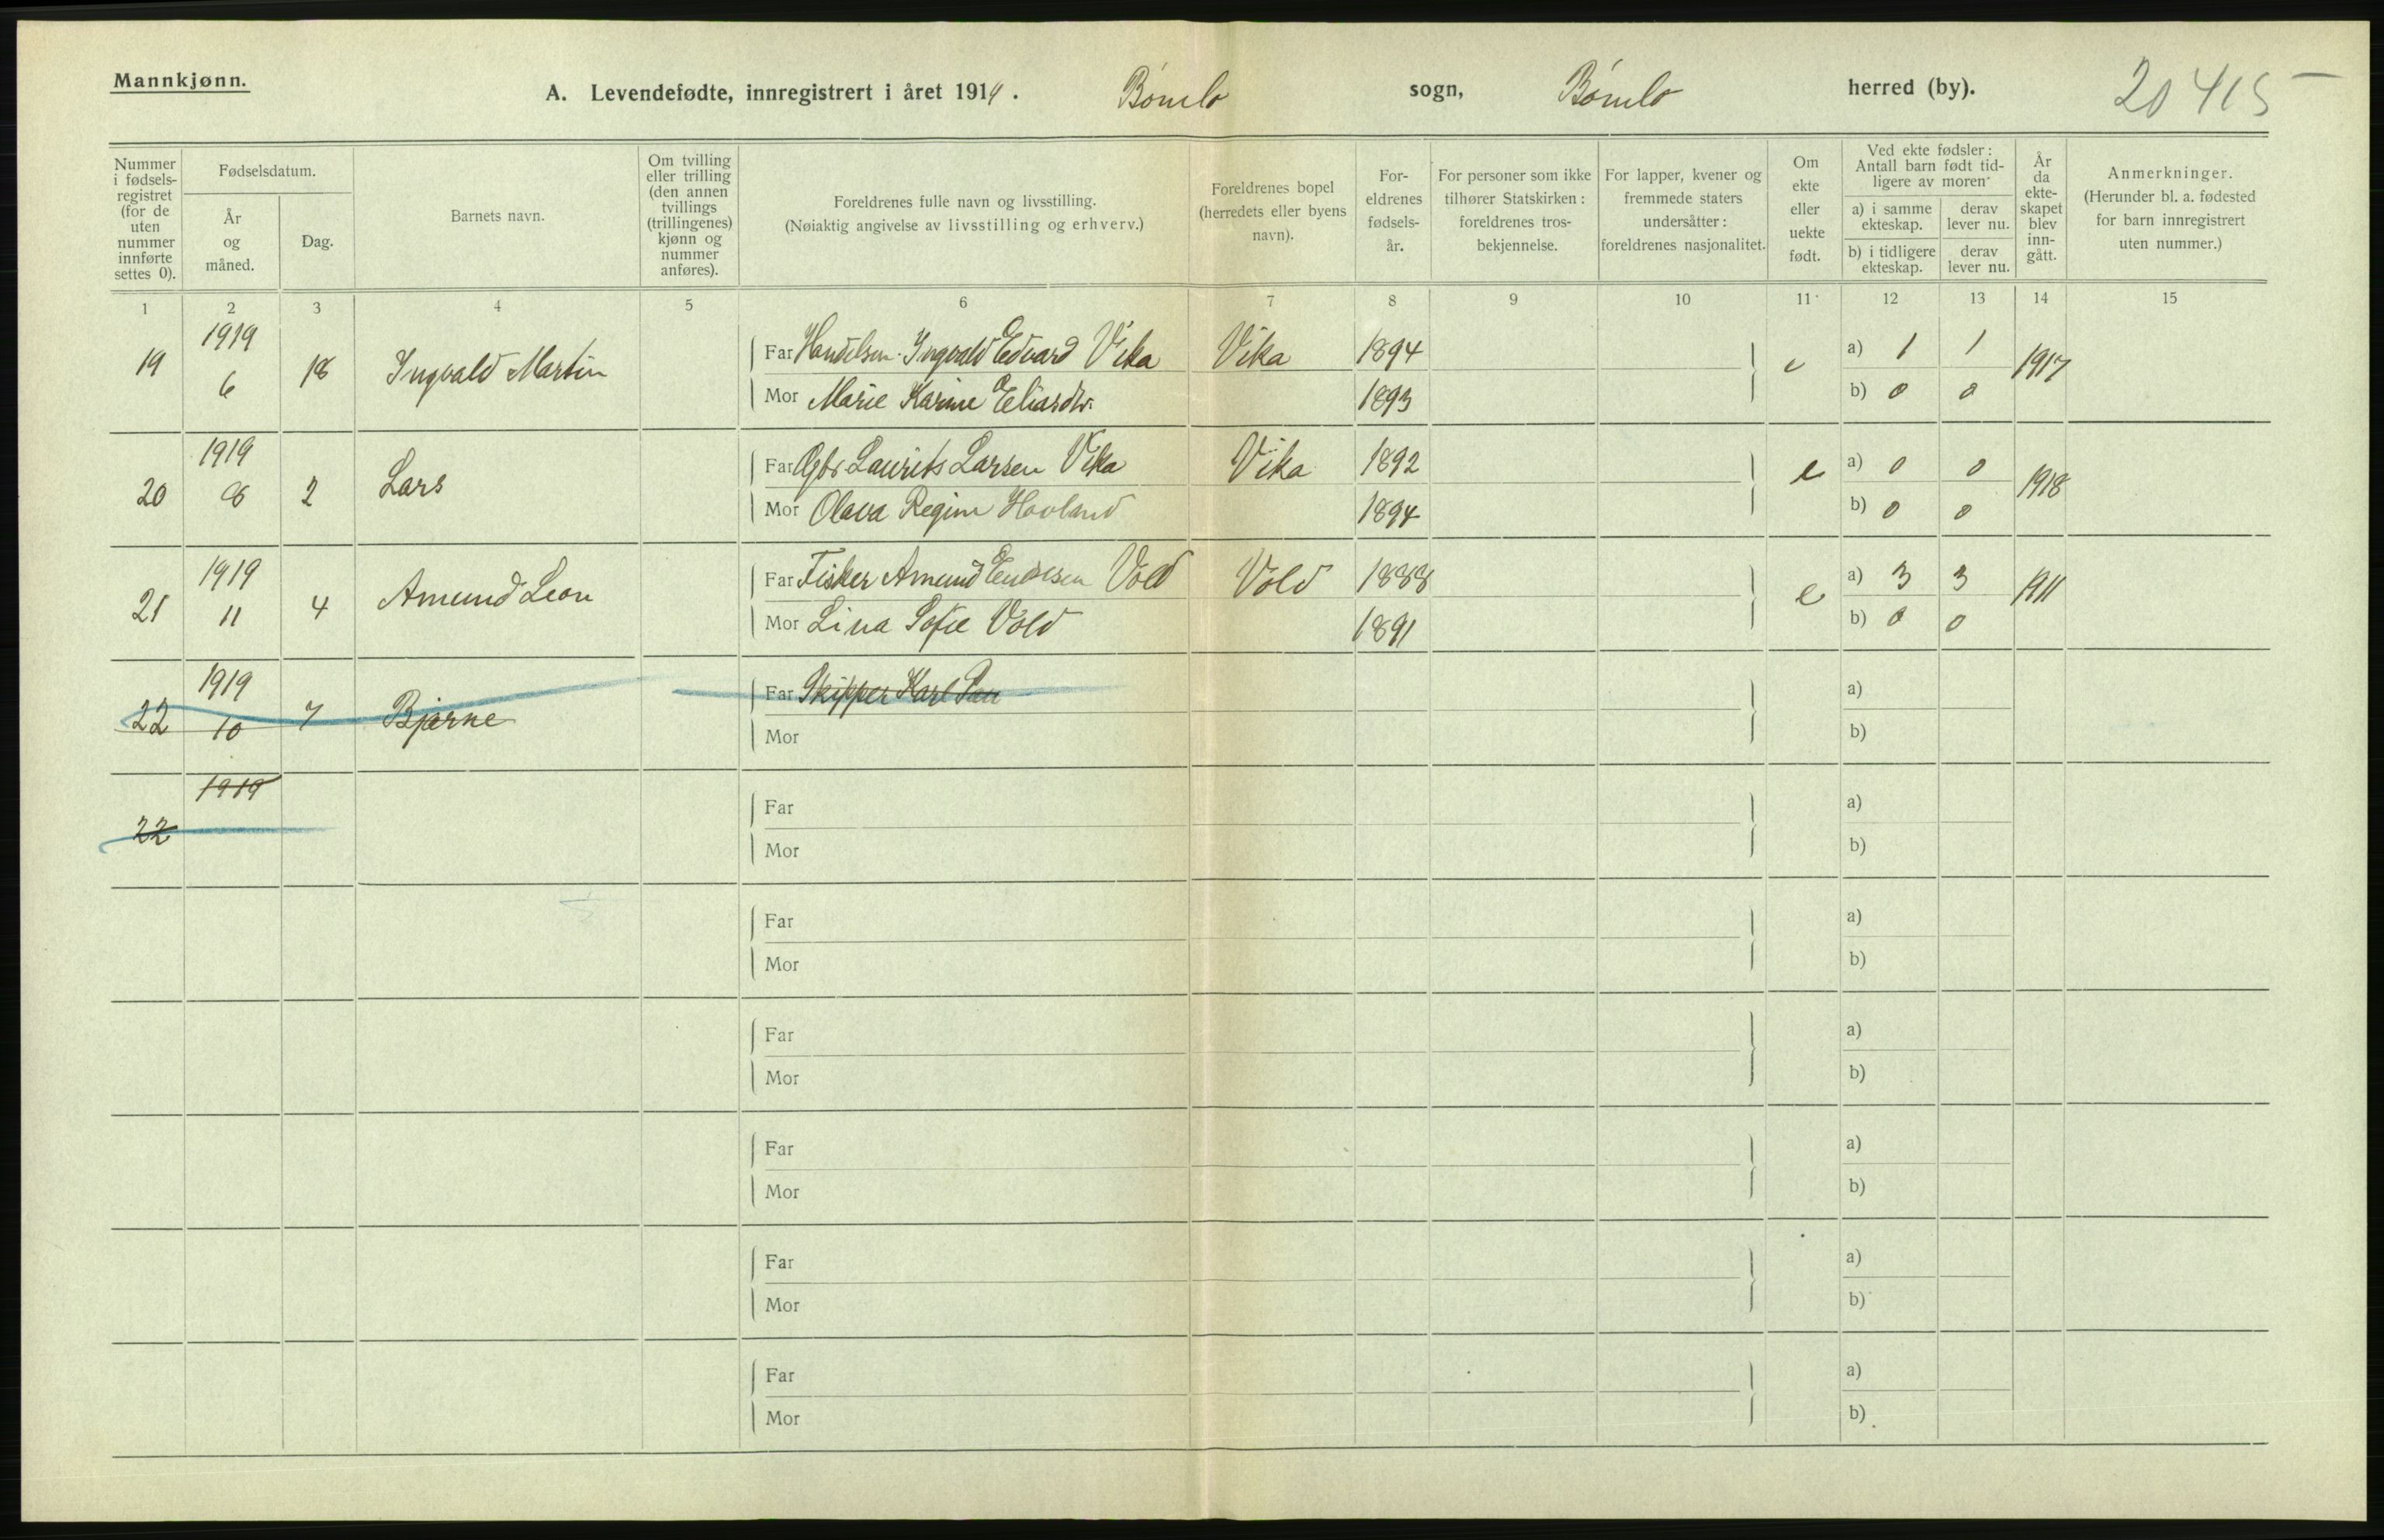 Mannkjønn.
A. Levendefødte, innregistrert i året 1919. Bømlo sogn, Bømlo herred (by). 20415
Nummer i fødsels-registret (for de uten nummer innførte settes 0).
Fødselsdatum.
År og måned.
Dag.
Barnets navn.
Om tvilling eller trilling (den annen tvillings (trillingenes) kjønn og nummer anføres).
Foreldrenes fulle navn og livsstilling.
(Nøiaktig angivelse av livsstilling og erhverv.)
Foreldrenes bopel (herredets eller byens navn).
For-eldrenes fødsels-år.
For personer som ikke tilhører Statskirken: foreldrenes tros-bekjennelse.
For lapper, kvener og fremmede staters undersåtter: foreldrenes nasjonalitet.
Om ekte eller uekte født.
Ved ekte fødsler: Antall barn født tid-ligere av moren
a) i samme ekteskap.
derav lever nu.
b) i tidligere ekteskap.
derav lever nu.
År da ekte-skapet blev inn-gått.
Anmerkninger.
(Herunder bl. a. fødested for barn innregistrert uten nummer.)
1 2 3 4 5 6 7 8 9 10 11 12 13 14 15
19 1919 6 18 Ingvald Martin Far Handelsm. Ingvald Edvard Vika Vika 1894 e a) 1 1 1917
Mor Marie Karine 1893 b) 0 0
20 1919 8 2 Lars Far Gbr Laurits Larsen Vika Vika 1892 e a) 0 0 1918
Mor Olava Regine Hovland 1894 b) 0 0
21 1919 11 4 Amund Leon Far Fisker Amund Endresen Vold Vold 1888 e a) 3 3 1911
Mor Lina Sofie Vold 1891 b) 0 0
22 1919 10 7 Bjarne Far Skipper Karl a)
Mor b)
22 1919 Far a)
Mor b)
Far a)
Mor b)
Far a)
Mor b)
Far a)
Mor b)
Far a)
Mor b)
Far a)
Mor b)